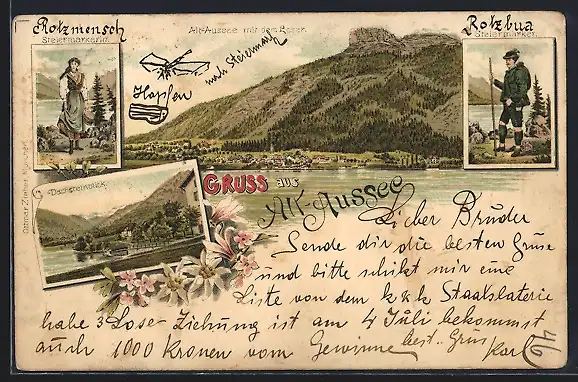 Rotzmensch
Steiermärkerin.
Alt-Aussee mit dem Loser.
Rotzbua
Steiermärker.
nach Steiermark
Hopfen
Dachsteinblick.
Ottmar Zieher, München.
GRUSS aus
Alt-Aussee
Lieber Bruder
Sende dir die besten Grüse
und bitte schikt mir eine
Liste von dem k & k Staatslaterie
habe 3 Lose Ziehung ist am 4 Juli bekommst
auch 1000 Kronen vom Gewinne best. Grus
Karl
4/6